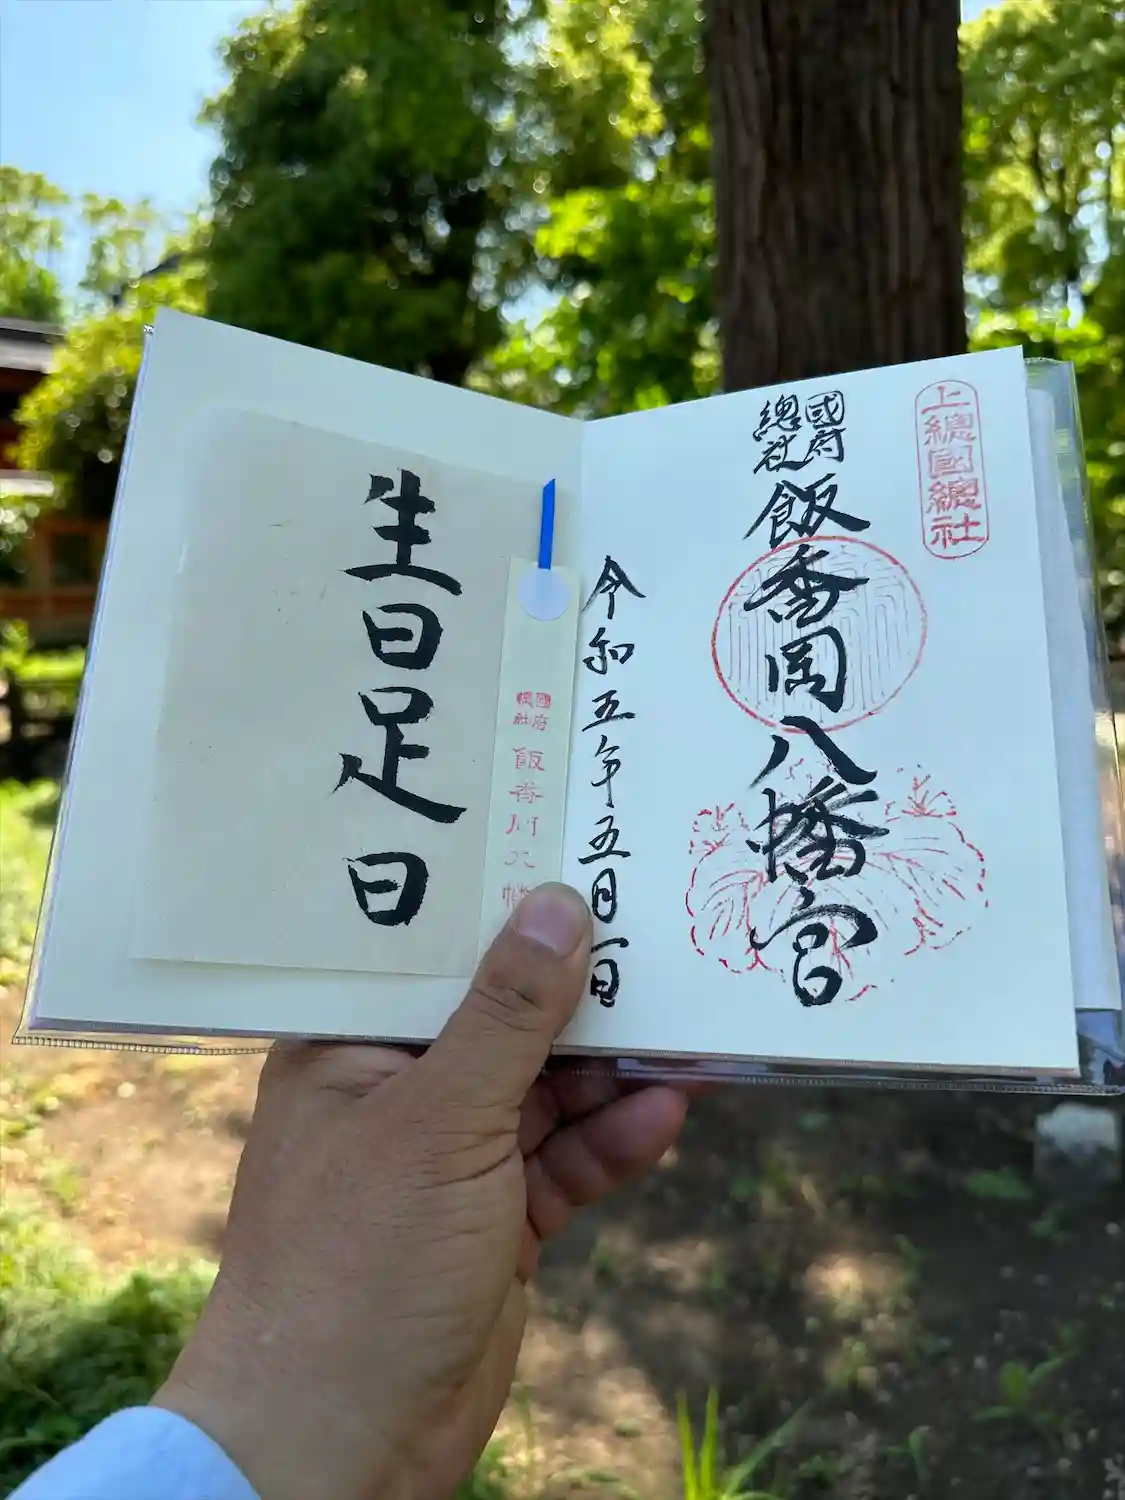 上總國總社
國府
總社
飯香岡八幡宮
令和五年五月一日
國府
總社
飯香岡八幡
生日足日